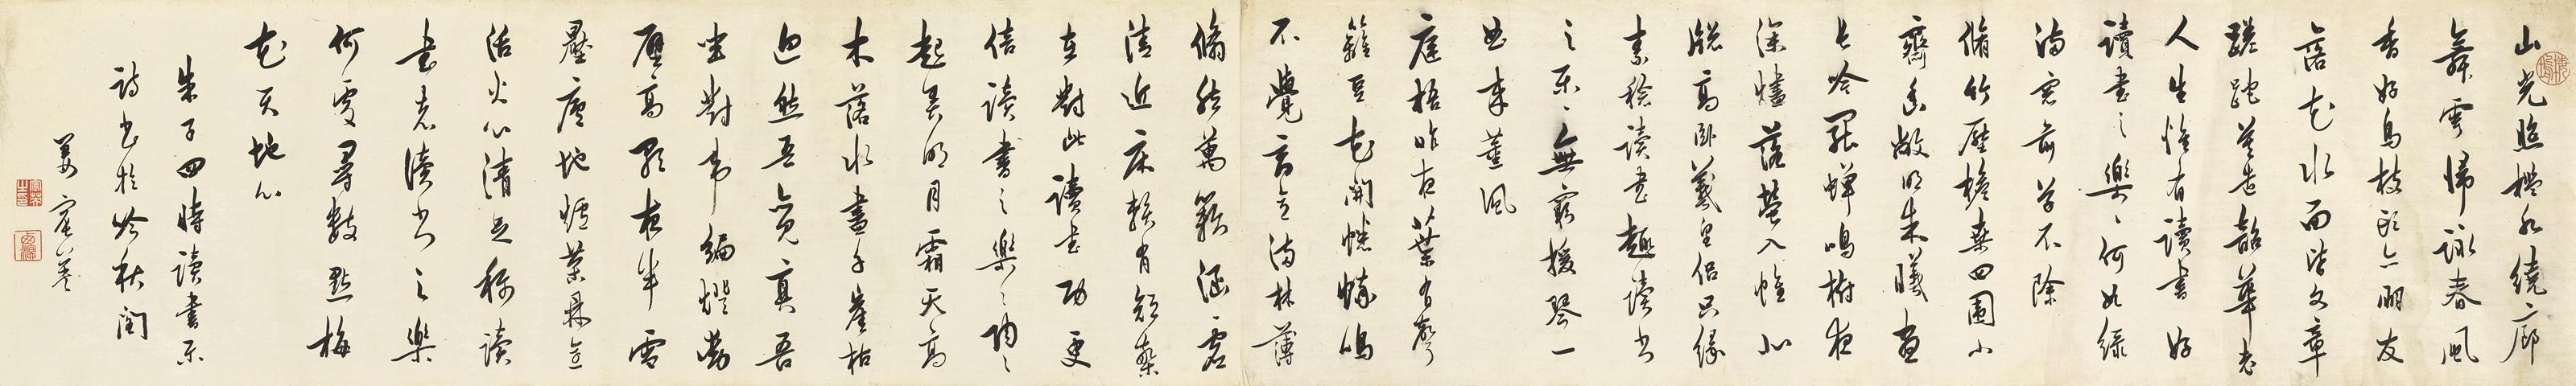 山光照檻水繞廊
舞雩歸詠春風
香好鳥枝頭亦朋友
落花水面皆文章
蹉跎莫遣韶華老
人生惟有讀書好
讀書之樂樂何如綠
滿窗前草不除
脩竹壓檐桑四圍小
齋幽敞明朱曦晝
長吟罷蟬鳴樹夜
深燼落螢入幃北
牕高臥羲皇侶只緣
素稔讀書趣讀書
之樂樂無窮援琴一
曲來薰風
庭梧昨夜葉有聲
籬豆花開蟋蟀鳴
不覺商意滿林薄
脩然萬籟涵虛
清近床賴有短檠
在對此讀書功更
倍讀書之樂樂陶陶
起弄明月霜天高
木落水盡千崖枯
迥然吾亦見真吾
坐對韋編燈動
壁高歌夜半雪
壓廬地爐茶鼎烹
活火心清足稱讀
書者讀書之樂
何處尋數點梅
花天地心
朱子四時讀書樂
詩書於
姜宸英